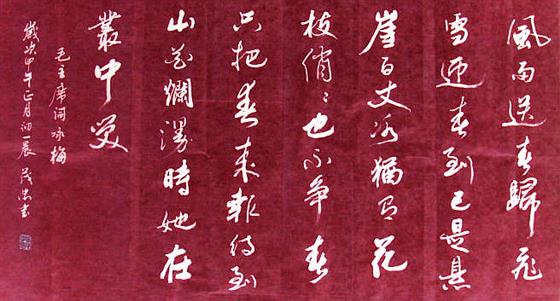 風雨送春歸飛
雪迎春到已是懸
崖百丈冰猶有花
枝俏〻也不爭春
只把春來報待到
山花爛漫時她在
叢中笑
毛主席词咏梅
歲次甲午正月初一晨 茂忠书